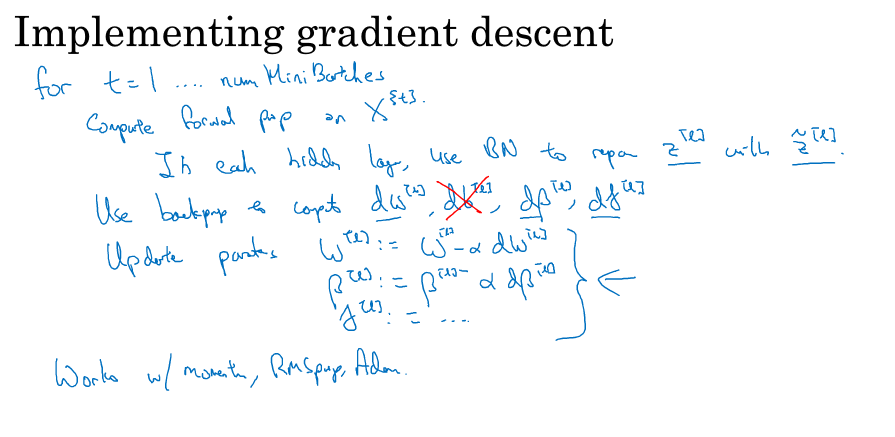 Implementing gradient descent
for t = 1 .... num Mini Batches
Compute forward prop on X^{t}.
In each hidden layer, use BN to repar z^[l] with z̃^[l].
Use backprop to comput dw^[l], db^[l], dβ^[l], dγ^[l]
Update partes w^[l] := w^[l] - α dw^[l]
β^[l] := β^[l] - α dβ^[l]
γ^[l] := ....
Works w/ momentum, RMSprop, Adam.